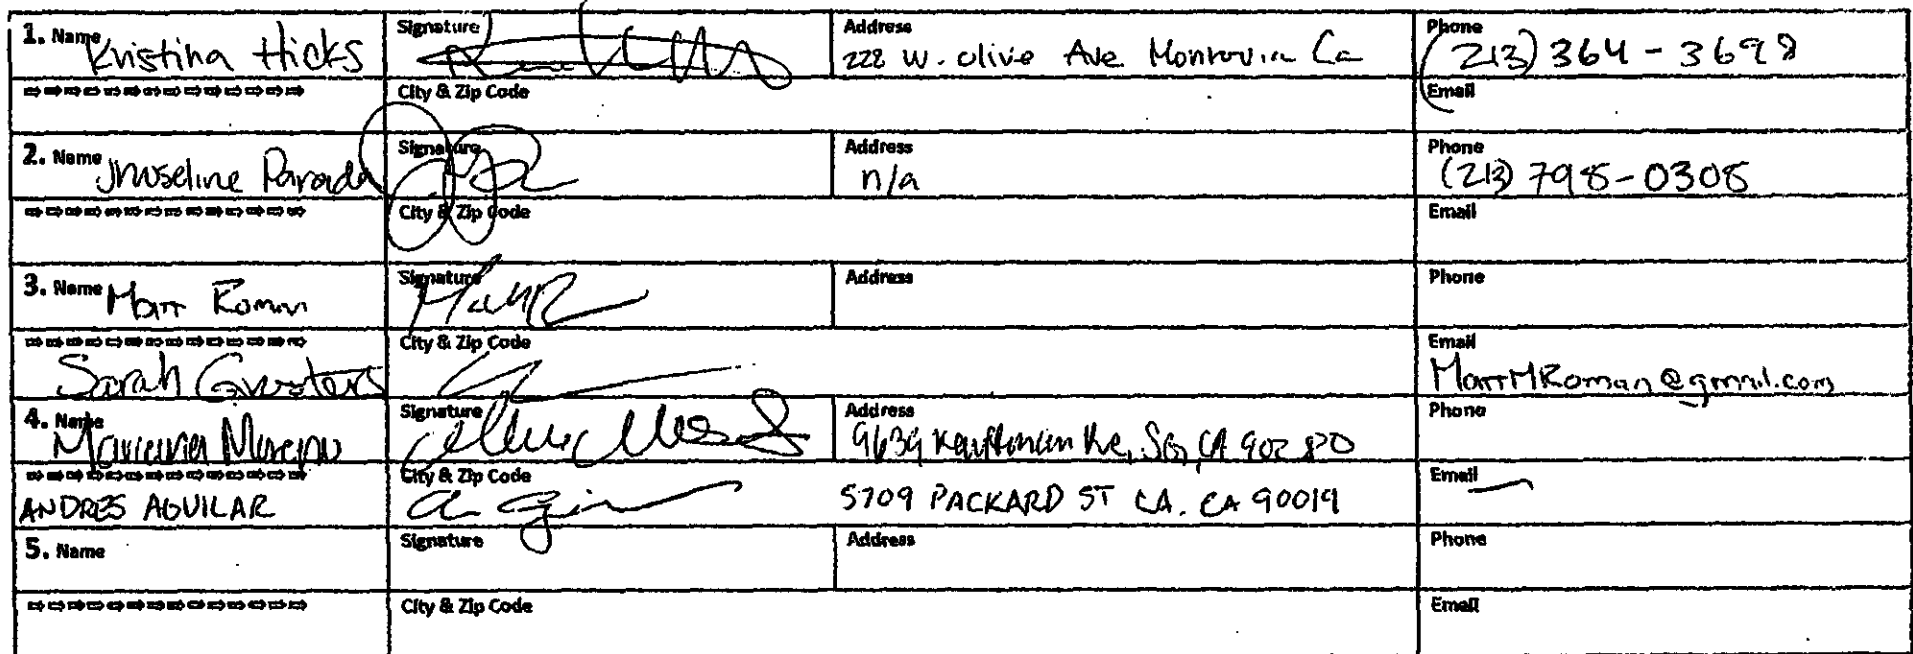 1. Name Kristina Hicks Signature Address 222 W. Olive Ave Monrovia Ca Phone (213) 364-3698
City & Zip Code Email
2. Name Jhoseline Parada Signature Address n/a Phone (213) 798-0308
City & Zip Code Email
3. Name Matt Roman Signature Address Phone
City & Zip Code Email
Sarah MattMRoman@gmail.com
4. Name Mariana Moreno Signature Address 9639 Ave, SG, CA 90280 Phone
City & Zip Code Email
ANDRES AGUILAR 5709 PACKARD ST LA. CA 90019
5. Name Signature Address Phone
City & Zip Code Email